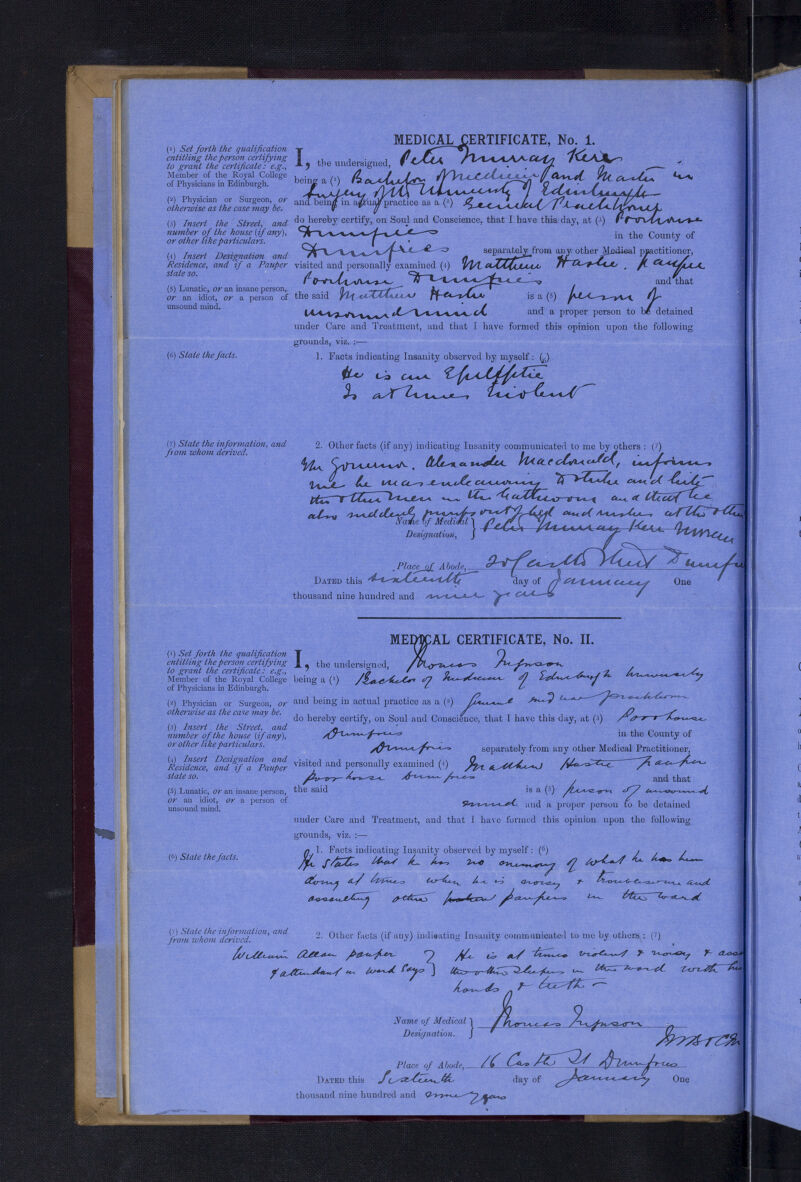 MEDICAL CERTIFICATE, No. 1.
(1) Set forth the qualification entitling the person certifying to grant the certificate: e.g., Member of the Royal College of Physicians in Edinburgh.
(2) Physician or Surgeon, or otherwise as the case may be.
(3) Insert the Street, and number of the house (if any), or other like particulars.
(4) Insert Designation and Residence, and if a Pauper state so.
(5) Lunatic, or an insane person, or an idiot, or a person of unsound mind.
I, the undersigned, Peter Murray Kerr
being a (1) Bachelor of Medicine and Master in
Surgery of the University of Edinburgh
and being in actual practice as a (2) General Practitioner
do hereby certify, on Soul and Conscience, that I have this day, at (3) Poorhouse
Dumfries in the County of
Dumfries separately from any other Medical practitioner,
visited and personally examined (4) Matthew Hastie. pauper
Poorhouse Dumfries and that
the said Matthew Hastie is a (5) person of
unsound mind and a proper person to be detained
under Care and Treatment, and that I have formed this opinion upon the following
grounds, viz. :—
(6) State the facts.
1. Facts indicating Insanity observed by myself: (6)
He is an Epileptic
Is at times Violent
(7) State the information, and from whom derived.
2. Other facts (if any) indicating Insanity communicated to me by others: (7)
The Governor. Alexander Macdonald, informs
me he was endeavouring to strike and bite
the other men in the bathroom and that he
also suddenly jumps out of bed and rushes at the other
Name of Medical Designation, } Peter Murray Kerr
Place of Abode, Castle Street Dumfries
DATED this sixteenth day of January One
thousand nine hundred and nine years
MEDICAL CERTIFICATE, No. II.
(1) Set forth the qualification entitling the person certifying to grant the certificate: e.g., Member of the Royal College of Physicians in Edinburgh.
(2) Physician or Surgeon, or otherwise as the case may be.
(3) Insert the Street, and number of the house (if any), or other like particulars.
(4) Insert Designation and Residence, and if a Pauper state so.
(5) Lunatic, or an insane person, or an idiot, or a person of unsound mind.
I, the undersigned, Thomas
being a (1) Bachelor of Medicine of Edinburgh University
and being in actual practice as a (2) General medical practitioner
do hereby certify, on Soul and Conscience, that I have this day, at (3) Poorhouse
Dumfries in the County of
Dumfries separately from any other Medical Practitioner,
visited and personally examined (4) Matthew Hastie pauper
Poorhouse Dumfries and that
the said is a (5) person of unsound
mind and a proper person to be detained
under Care and Treatment, and that I have formed this opinion upon the following
grounds, viz. :—
(6) State the facts.
1. Facts indicating Insanity observed by myself: (6)
He states that he has no memory of what he has been
doing at times when he is noisy & troublesome and
assaulting other paupers in the ward
(7) State the information, and from whom derived.
2. Other facts (if any) indicating Insanity communicated to me by others: (7)
William Allan pauper & attendant in ward says } He is at times violent & noisy &
the other sleepers in the ward with his
hands & teeth
Name of Medical Designation. } Thomas
MB & CM
Place of Abode, 16 Castle St Dumfries
DATED this Sixteenth day of January One
thousand nine hundred and nine years